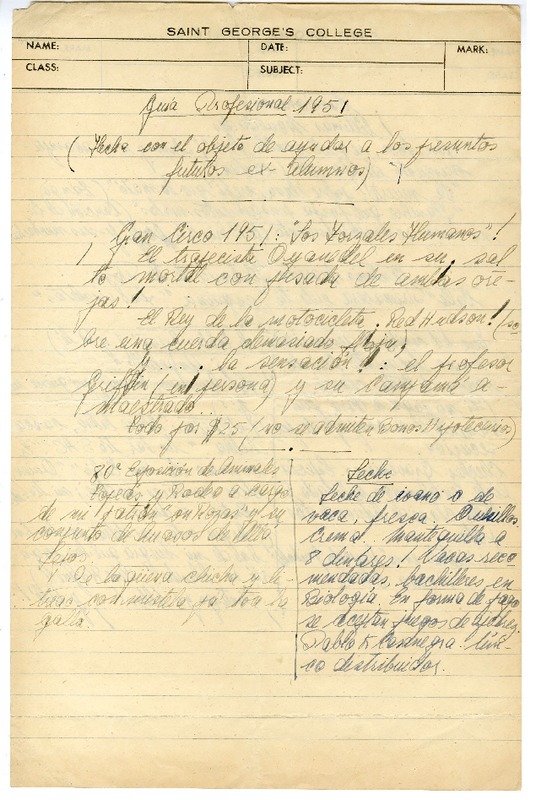 SAINT GEORGE'S COLLEGE
NAME:
DATE:
MARK:
CLASS:
SUBJECT:
Guía Profesional 1951
(Hecha con el objeto de ayudar a los presuntos
futuros ex-alumnos)
Gran Circo 1951: "Los Forzales Humanos"!
El trapecista Oyanedel en su sal
to mortal con pisada de ambas ore-
jas!
El Rey de la motocicleta: Red Hudson! (so
bre una cuerda demasiado floja)
y..... la sensación!: el profesor
Griffin (en persona) y su a-
maestrado...
todo por $25 (no se admiten bonos Hipotecarios)
80ª Exposición de Animales
y Rodeo a cargo
de mi "on Rojas" y su
conjunto de de
Lejos
De la güena chicha y
con
galla
Leche
Leche de o de
vaca, fresca.
Crema. Mantequilla a
8 dinlares! Vacas reco-
mendadas, bachilleres en
Biología, en forma de pago
se aceptan juegos de ajedrez.
Pablo K. úni-
co distribuidor.